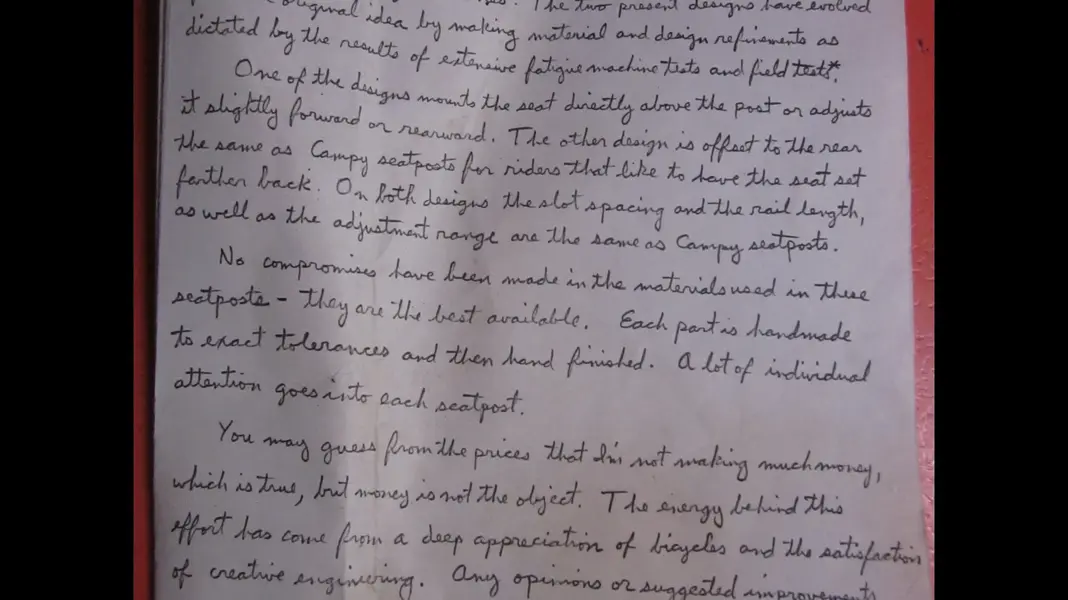 original idea by making material and design refinements as
The two present designs have evolved
dictated by the results of extensive fatigue machine tests and field tests*.
One of the designs mounts the seat directly above the post or adjusts
it slightly forward or rearward. The other design is offset to the rear
the same as Campy seatposts for riders that like to have the seat set
farther back. On both designs the slot spacing and the rail length,
as well as the adjustment range are the same as Campy seatposts.
No compromises have been made in the materials used in these
seatposts - they are the best available. Each part is handmade
to exact tolerances and then hand finished. A lot of individual
attention goes into each seatpost.
You may guess from the prices that I'm not making much money,
which is true, but money is not the object. The energy behind this
effort has come from a deep appreciation of bicycles and the satisfaction
of creative engineering. Any opinions or suggested improvements